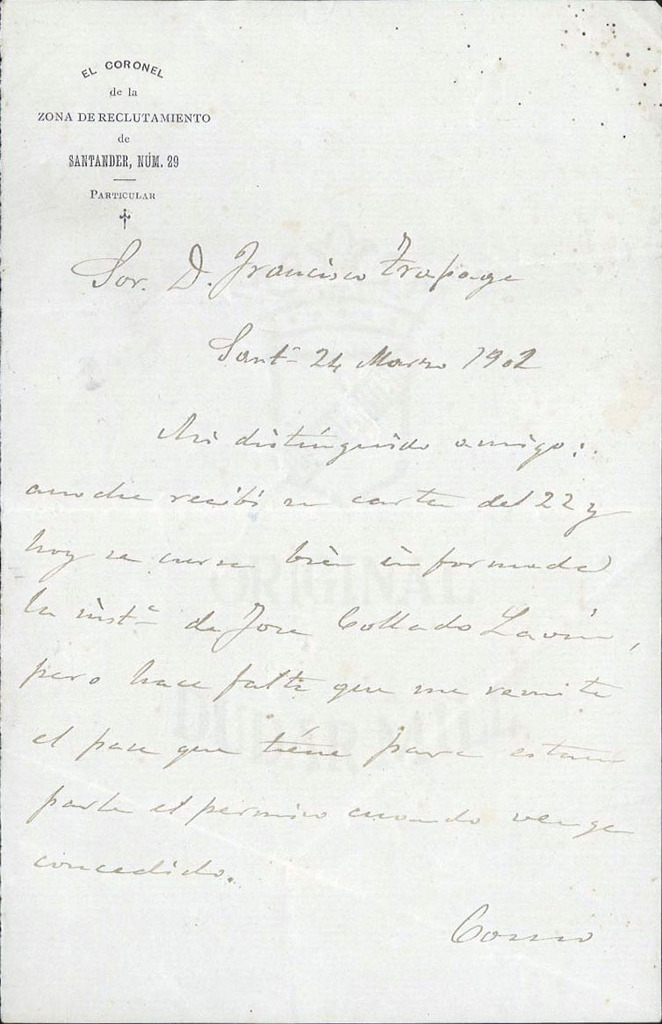 EL CORONEL
de la
ZONA DE RECLUTAMIENTO
de
SANTANDER, NÚM. 29
PARTICULAR
Sor. D. Francisco Trapaga
Santr 24 Marzo 1902
Mi distinguido amigo:
anoche recibí su carta del 22 y
hoy se cursa bien informada
la instª de Jose Collado Lavin,
pero hace falta que me remita
el pase que tiene para estam
parle el permiso cuando venga
concedido.
Como
ORIGINAL
MILL